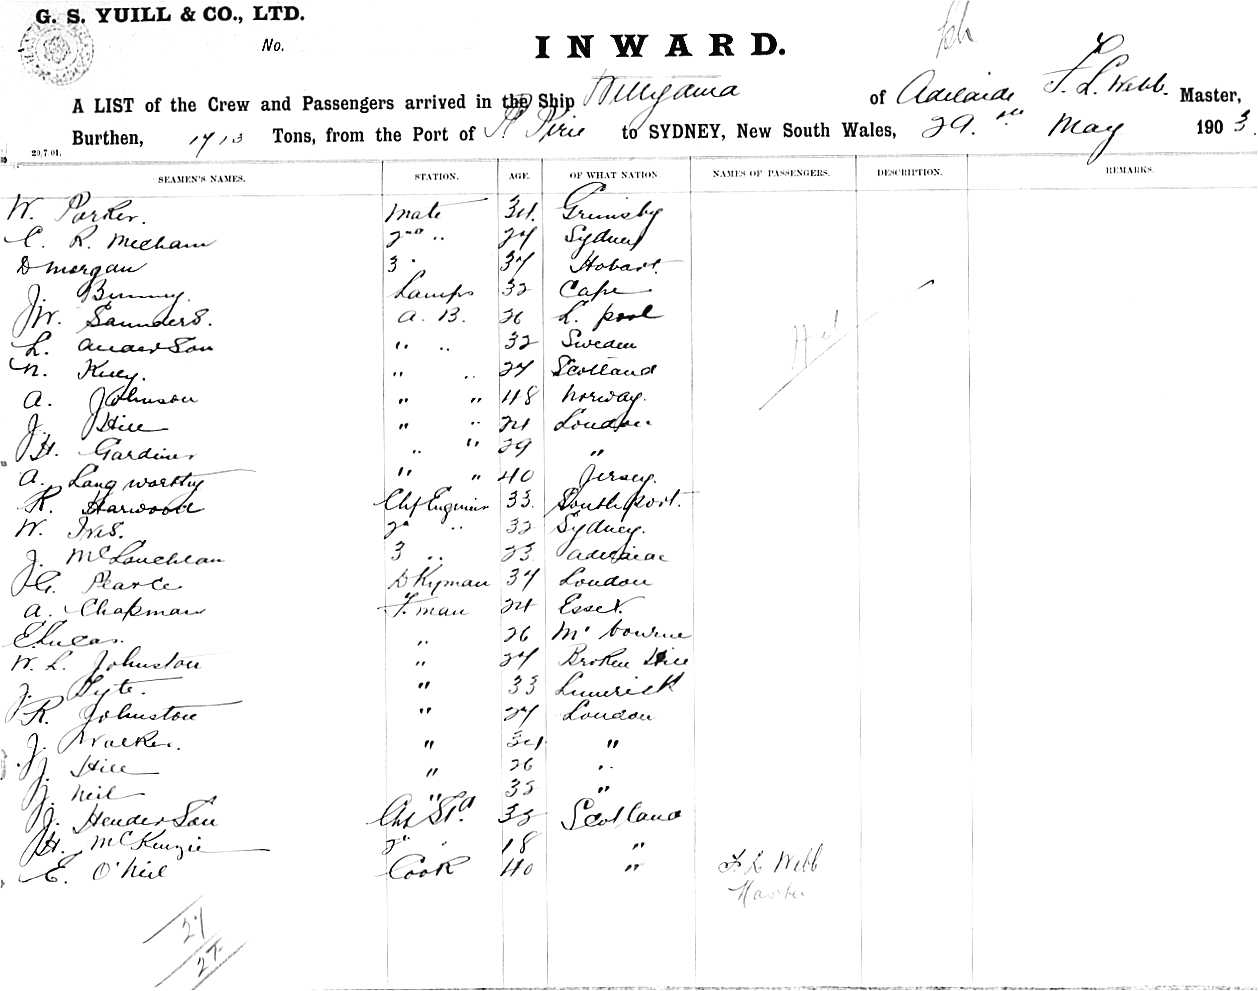 G. S. YUILL & CO., LTD.
No.
INWARD.
A LIST of the Crew and Passengers arrived in the Ship Willyama of Adelaide F. L. Webb. Master,
Burthen, 1713 Tons, from the Port of Pt Pirie to SYDNEY, New South Wales, 29. May 1903.
20.7.01.
SEAMEN'S NAMES. STATION. AGE. OF WHAT NATION NAMES OF PASSENGERS. DESCRIPTION. REMARKS.
W. Parker. Mate 34. Grimsby
C. R. Mecham 2nd " 27 Sydney
D Morgan 3 " 37 Hobart
J. Bunny. Lamps 32 Cape
W. Saunders. A. B. 26 L. pool
L. Anderson " " 32 Sweden
N. " " 27 Scotland
A. Johnson " " 48 Norway.
J. Hill " " 24 London
H. Gardiner " " 29 "
A. Langworthy " " 40 Jersey.
R. Harwood Chf Engineer 33. Southport.
W. Ives. 2nd " 32 Sydney.
J. McLauchlan 3 " 23 Adelaide
G. Pearce Dkyman 37 London
A. Chapman F. man 24 Essex.
E. Lucas. " 26 M'bourne
W. L. Johnston " 27 Broken Hill
J. Tyte. " 33 Limerick
R. Johnstone " 27 London
J. Walker. " 34 "
J. Hill " 26 "
J. Neil " 33 "
J. Henderson Chf Std. 33 Scotland
H. McKenzie 2nd " 18 "
E. O'Neil Cook 40 " F L Webb
Master
27
27